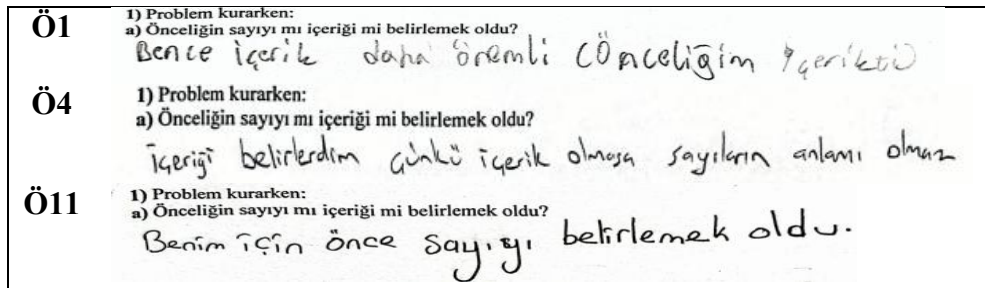 Ö1
1) Problem kurarken:
a) Önceliğin sayıyı mı içeriği mi belirlemek oldu?
Bence içerik daha önemli (Önceliğim içerikti)
Ö4
1) Problem kurarken:
a) Önceliğin sayıyı mı içeriği mi belirlemek oldu?
İçeriği belirlerdim çünkü içerik olmasa sayıların anlamı olmaz
Ö11
1) Problem kurarken:
a) Önceliğin sayıyı mı içeriği mi belirlemek oldu?
Benim için önce sayıyı belirlemek oldu.